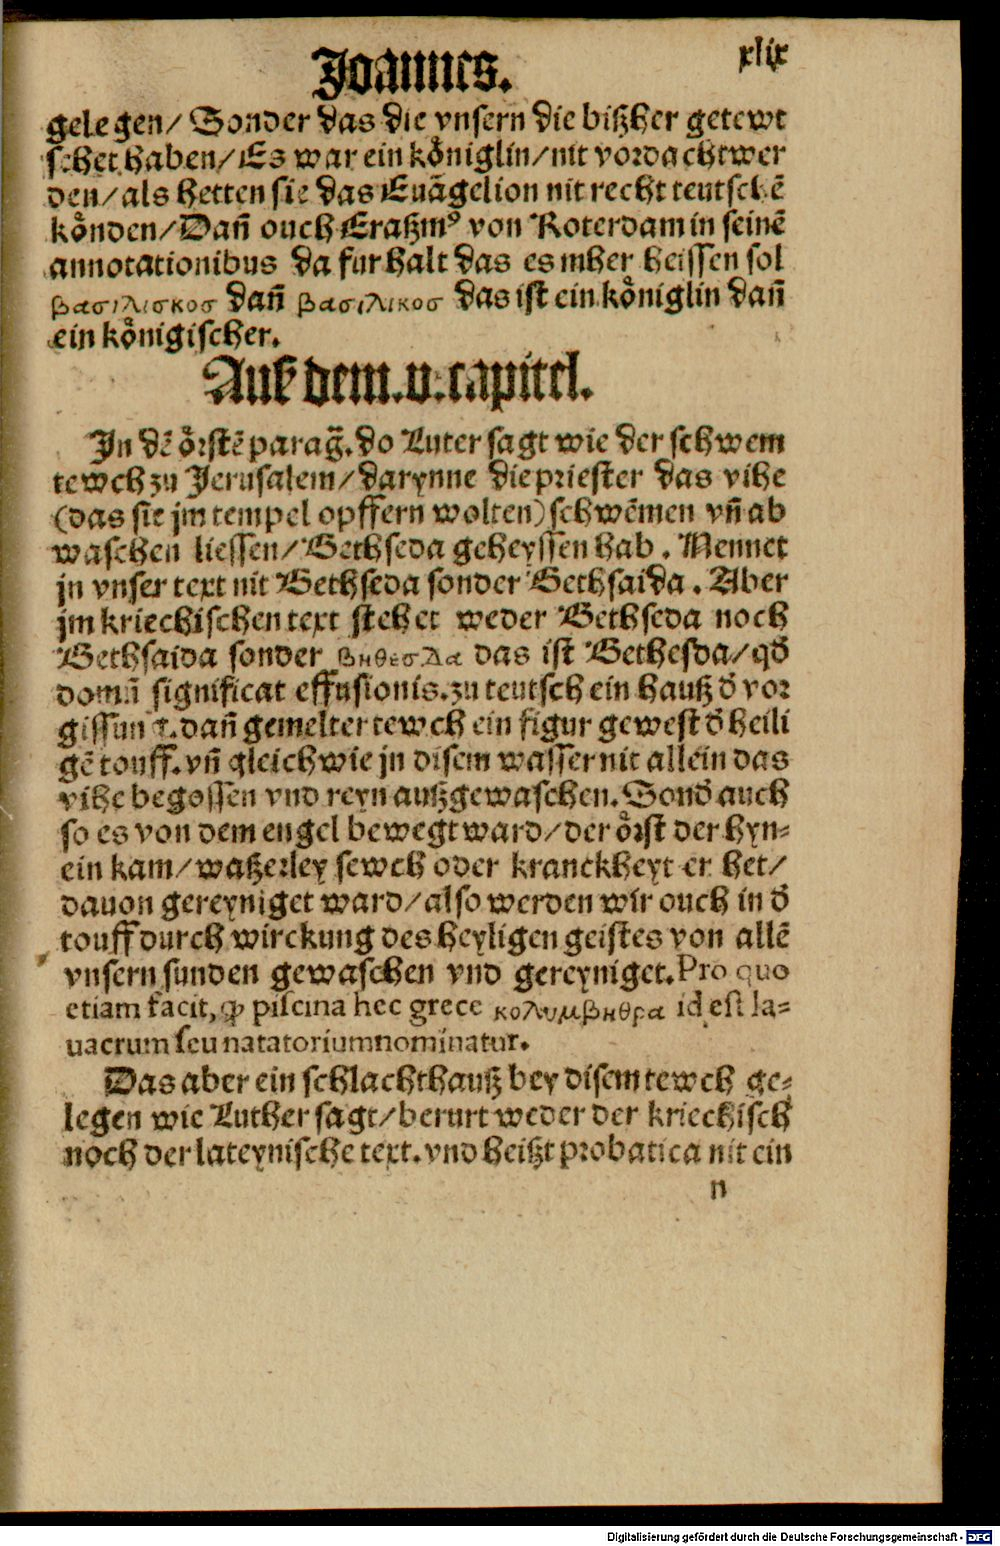 Joannes.
xlix
gelegen/ Sonder das die vnsern die bißher getewt
schet haben/ Es war ein kǒniglin/ nit vordacht wer
den/ als hetten sie das Euãgelion nit recht teutschẽ
kǒnden/ Dañ ouch Eraßmꝰ von Roterdam in seinẽ
annotationibus da fur halt das es mher heissen sol
βασιλισκοσ dañ βασιλικοσ das ist ein kǒniglin dañ
ein kǒnigischer.
Auß dem .v. capitel.
Jn dẽ ǒrstẽ parag̃. do Luter sagt wie der schwem
tewch zu Jerusalem/ darynne die priester das vihe
(das sie jm tempel opffern wolten) schwẽmen vñ ab
waschen liessen/ Bethseda geheyssen hab. Nennet
jn vnser text nit Bethseda sonder Bethsaida. Aber
jm kriechischen text stehet weder Bethseda noch
Bethsaida sonder βηθεσδα das ist Bethesda/ qď
domũ significat effusionis. zu teutsch ein hauß ď vor
gissung. dañ gemelter tewch ein figur gewest ď heili
gẽ touff. vñ gleich wie jn disem wasser nit allein das
vihe begossen vnd reyn außgewaschen. Sonď auch
so es von dem engel bewegt ward/ der ǒrst der hyn⸗
ein kam/ waßerley sewch oder kranckheyt er het/
dauon gereyniget ward/ also werden wir ouch in ď
touff durch wirckung des heyligen geistes von allẽ
vnsern sunden gewaschen vnd gereyniget. Pro quo
etiam facit, ꝙ piscina hec grece κολυμβηθρα id est la⸗
uacrum seu natatorium nominatur.
Das aber ein schlachthauß bey disem tewch ge⸗
legen wie Luther sagt/ berurt weder der kriechisch
noch der lateynische text. vnd heißt probatica nit ein
n
Digitalisierung gefördert durch die Deutsche Forschungsgemeinschaft - DFG